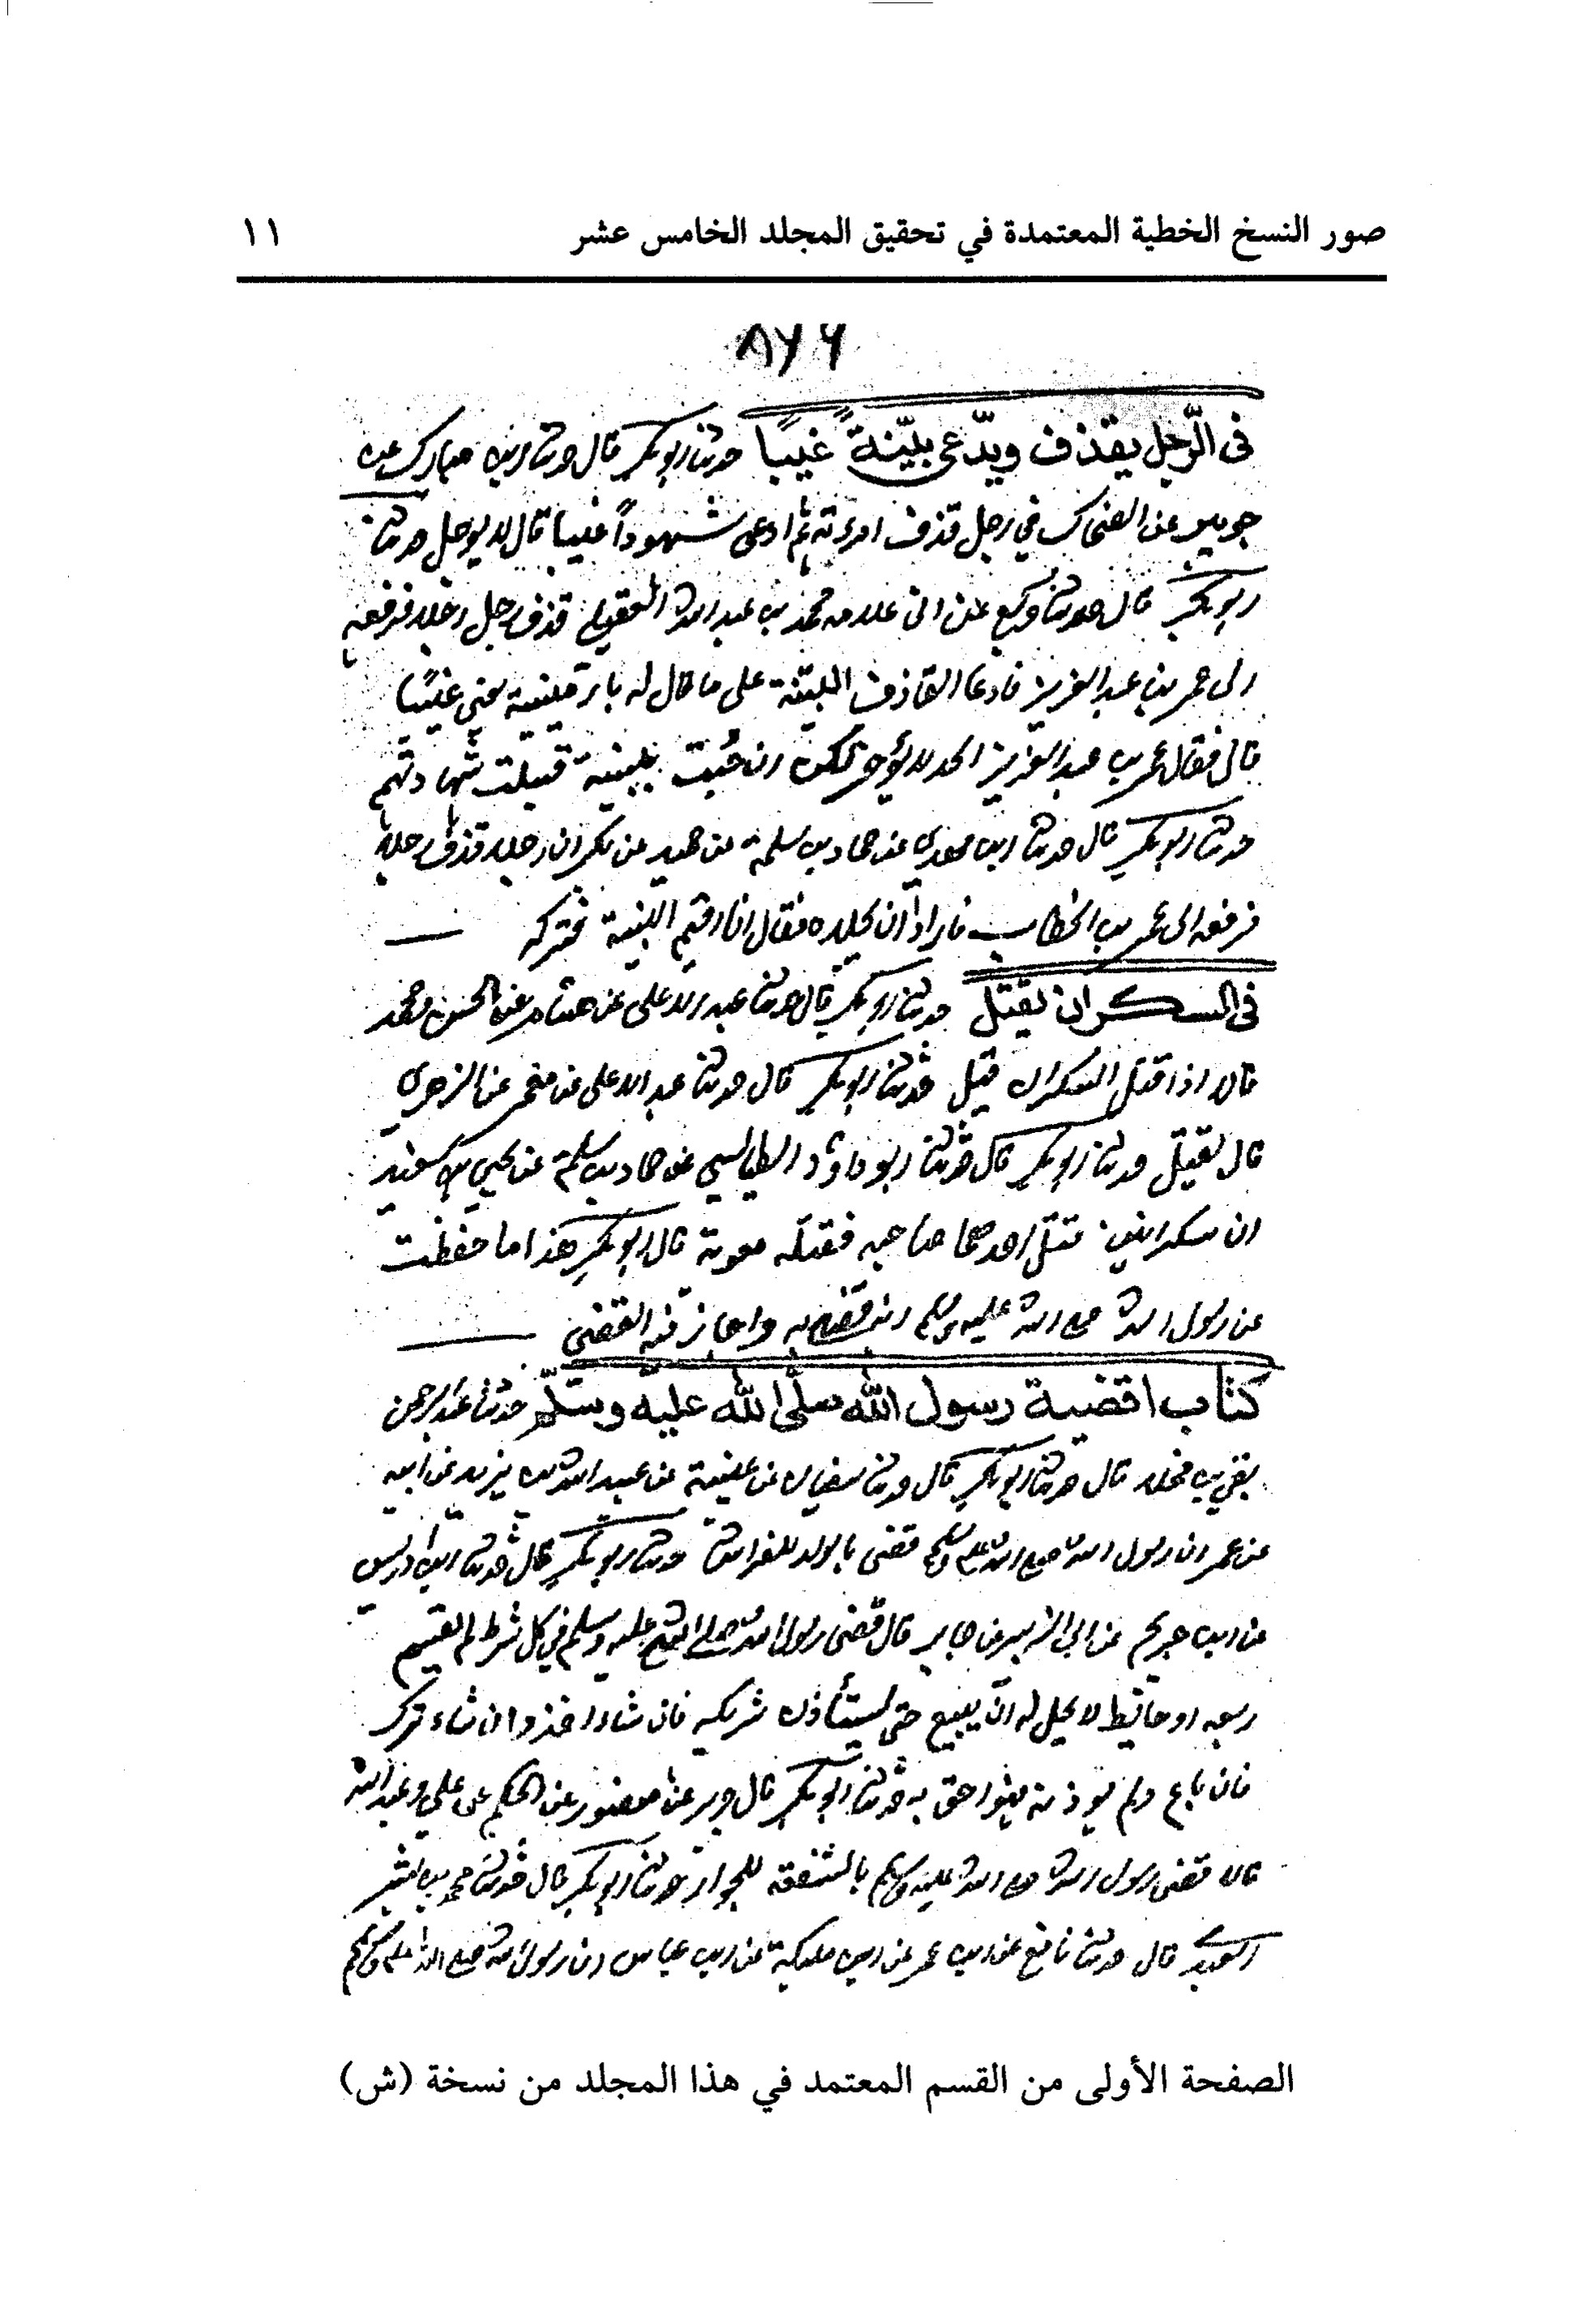 صور النسخ الخطية المعتمدة في تحقيق المجلد الخامس عشر ١١
٨٢٦
فى الرّجل يقذف ويدّعى بيّنةً غيبًا حدثنا ابو بكر قال حدثنا ابن مبارك عن
جويبر عن الضحاك في رجل قذف امرءته ثم ادعى شهوداً غيبا قال لا يوجل حدثنا
ابو بكر قال حدثنا وكيع عن ابى علاثة محمد بن عبد الله العقيلي قذف رجل رجلا فرفعه
الى عمر بن عبد العزيز فادعا القاذف البينة على ما قال له بارمينية يعني غيبًا
قال فقال عمر بن عبد العزيز الحد لا يؤخر لكن ان جئت ببينة قبلت شهادتهم
حدثنا ابو بكر قال حدثنا ابن مهدي عن حماد بن سلمة عن حميد عن بكر ان رجلا قذف رجلا
فرفعه الى عمر بن الخطاب فاراد أن يجلده فقال انا اقيم البينة فتركه
فى السكران يقتل حدثنا ابو بكر قال حدثنا عبد الاعلى عن هشام عن الحسن ومحمد
قالا اذا قتل السكران قتل حدثنا ابو بكر قال حدثنا عبد الاعلى عن معمر عن الزهري
قال يقتل حدثنا ابو بكر قال حدثنا ابو داود الطيالسي عن حماد بن سلمة عن يحيى بن سعيد
ان سكرانين قتل احدهما صاحبه فقتله معوية قال ابو بكر هذا ما حفظت
عن رسول الله صلى الله عليه وسلم انه قضى به واجاز فيه القضى
كتاب اقضية رسول الله صلّى الله عليه وسلّم حدثنا عبد الرحمن
بقي بن مخلد قال حدثنا ابو بكر قال حدثنا سفيان عن عيينة عن عبيد الله بن يزيد عن ابيه
عن عمر ان رسول الله صلى الله عليه وسلم قضى بالولد للفراش حدثنا ابو بكر قال حدثنا ابن ادريس
عن ابن جريج عن ابى الزبير عن جابر قال قضى رسول الله صلى الله عليه وسلم في كل شرك لم يقسم
ربعه او حائط لا يحل له ان يبيع حتى يستأذن شريكه فان شاء اخذ وان شاء ترك
فان باع ولم يوذنه فهو احق به حدثنا ابو بكر قال جرير عن منصور عن الحكم عن علي وعبد الله
قالا قضى رسول الله صلى الله عليه وسلم بالشفعة للجوار حدثنا ابو بكر قال حدثنا محمد بن بشر
قال حدثنا نافع عن ابن عمر عن ابن مليكة عن ابن عباس ان رسول الله صلى الله عليه وسلم
الصفحة الأولى من القسم المعتمد في هذا المجلد من نسخة (ش)